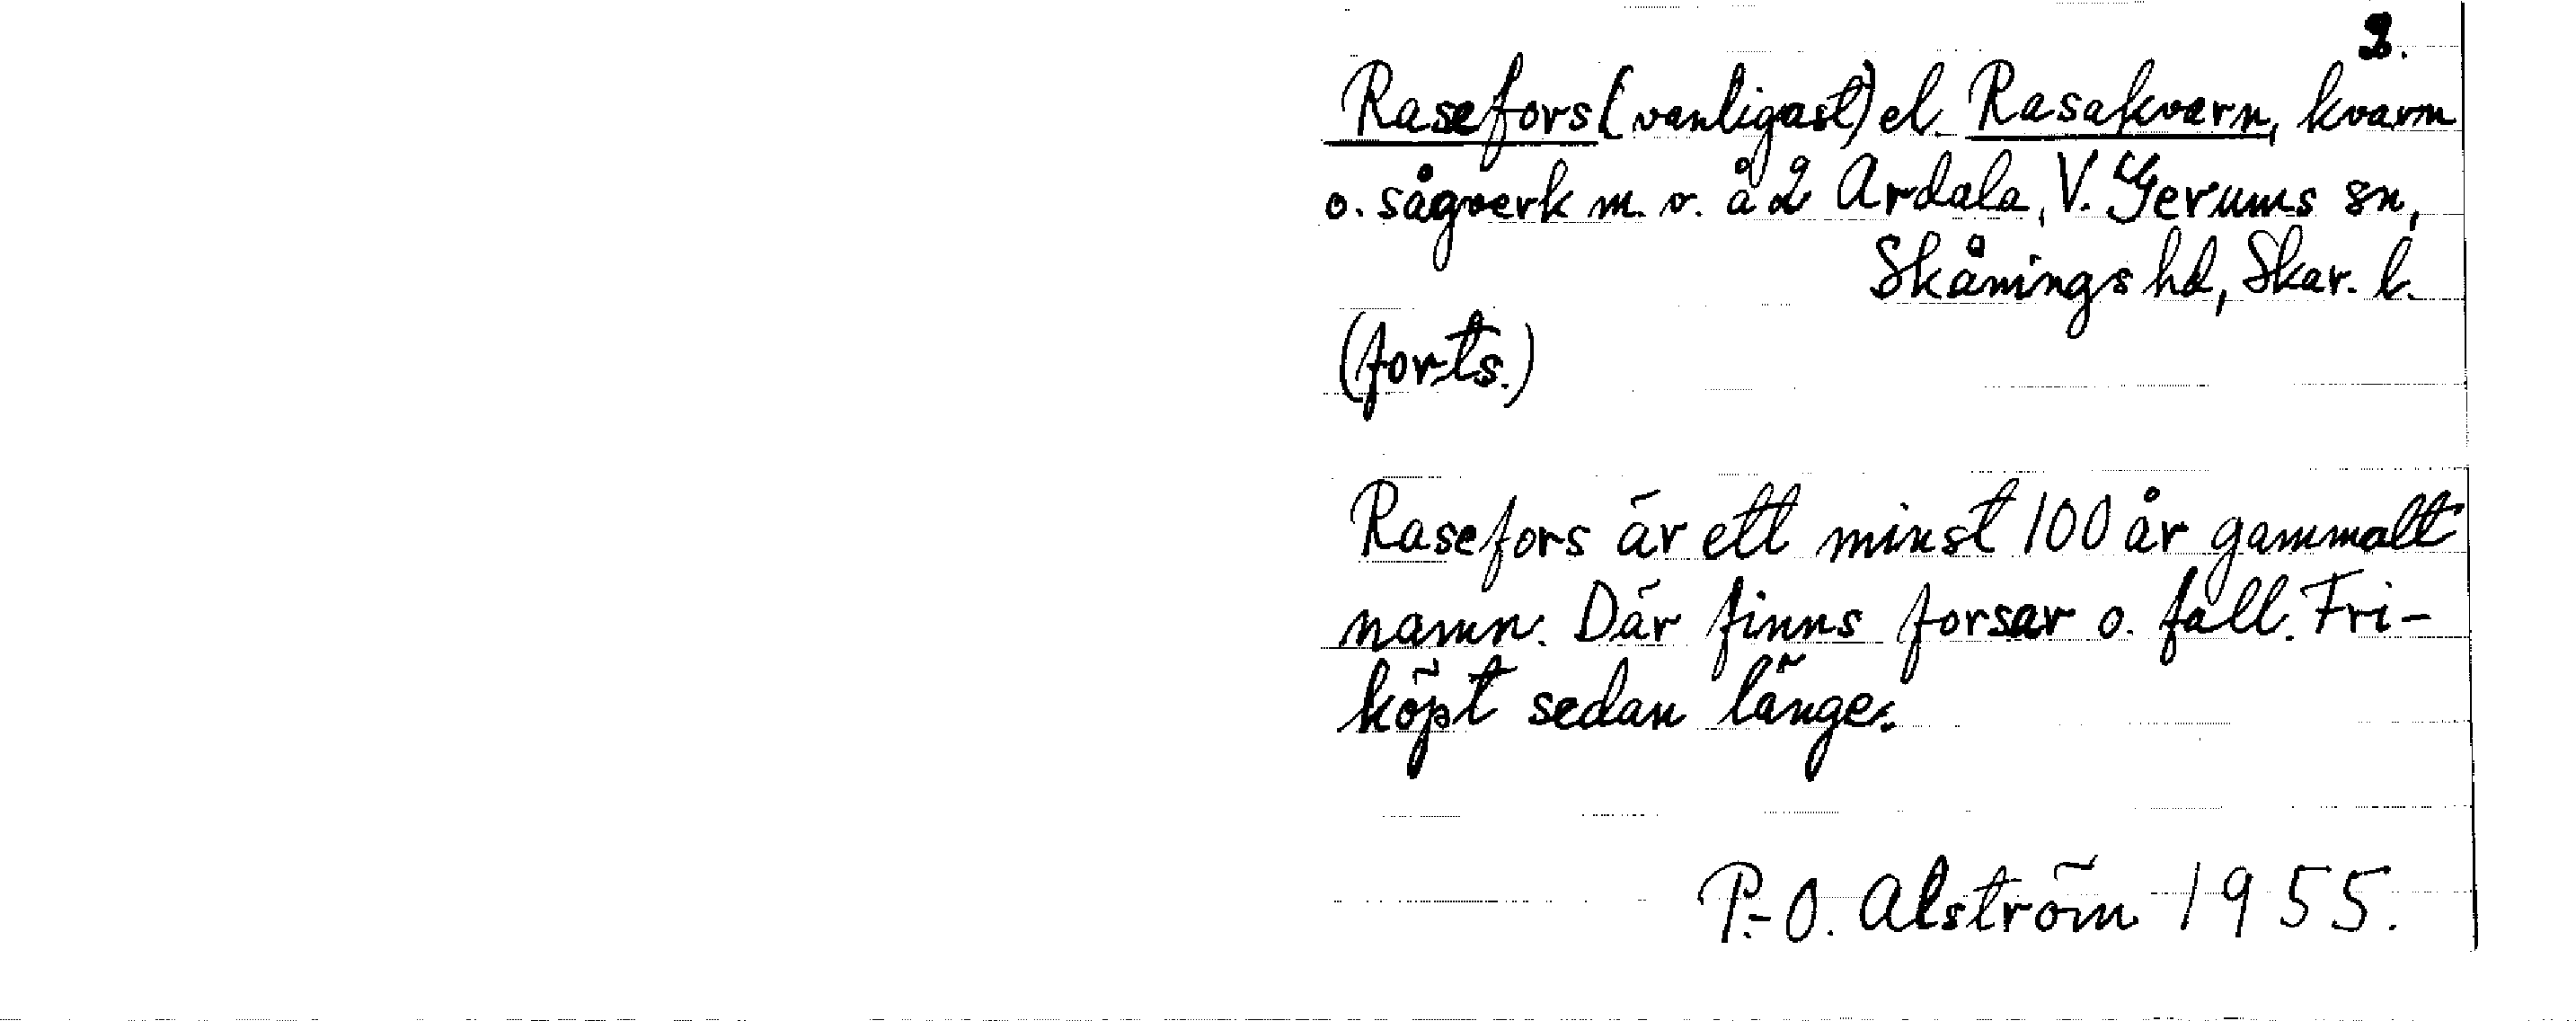 2.
Rasefors (vanligast) el. Rasakvarn, kvarn
o. sågverk m. v. å 2 Ardala, V. Gerums sn,
Skånings hd, Skar. l.
(forts.)
Rasefors är ett minst 100 år gammalt
namn. Där finns forsar o. fall. Fri-
köpt sedan länge.
P.-O. Alström 1955.